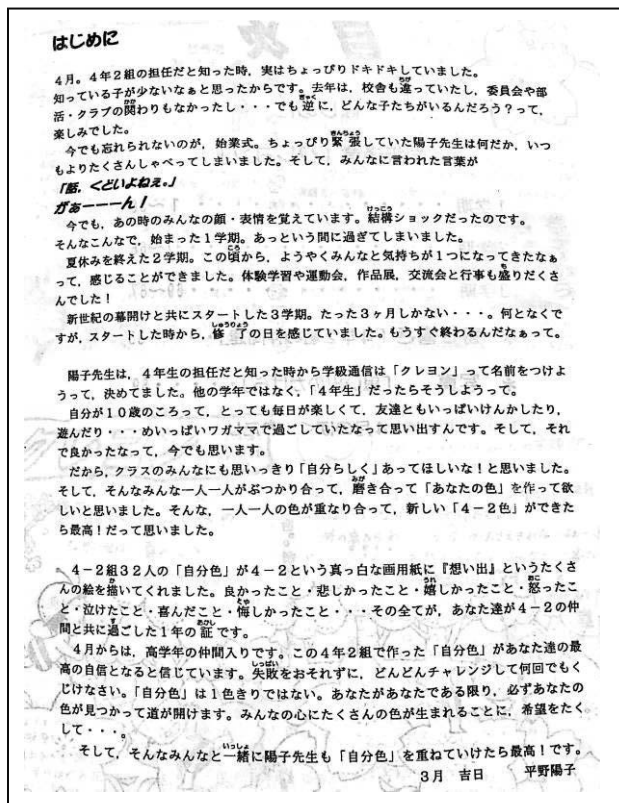 はじめに
4月。4年2組の担任だと知った時，実はちょっぴりドキドキしていました。
知っている子が少ないなぁと思ったからです。去年は，校舎も違っていたし，委員会や部
活・クラブの関わりもなかったし・・・でも逆に，どんな子たちがいるんだろう？って，
楽しみでした。
今でも忘れられないのが，始業式。ちょっぴり緊張していた陽子先生は何だか，いつ
もよりたくさんしゃべってしまいました。そして，みんなに言われた言葉が
「話，くどいよねえ。」
がぁーーーん！
今でも，あの時のみんなの顔・表情を覚えています。結構ショックだったのです。
そんなこんなで，始まった1学期。あっという間に過ぎてしまいました。
夏休みを終えた2学期。この頃から，ようやくみんなと気持ちが1つになってきたなぁ
って，感じることができました。体験学習や運動会，作品展，交流会と行事も盛りだくさ
んでした！
新世紀の幕開けと共にスタートした3学期。たった3ヶ月しかない・・・。何となくで
すが，スタートした時から，修了の日を感じていました。もうすぐ終わるんだなぁって。
陽子先生は，4年生の担任だと知った時から学級通信は「クレヨン」って名前をつけよ
うって，決めてました。他の学年ではなく，「4年生」だったらそうしようって。
自分が10歳のころって，とっても毎日が楽しくて，友達ともいっぱいけんかしたり，
遊んだり・・・めいっぱいワガママで過ごしていたなって思い出すんです。そして，それ
で良かったなって，今でも思います。
だから，クラスのみんなにも思いっきり「自分らしく」あってほしいな！と思いました。
そして，そんなみんな一人一人がぶつかり合って，磨き合って「あなたの色」を作って欲
しいと思いました。そんな，一人一人の色が重なり合って，新しい「4－2色」ができた
ら最高！だって思いました。
4－2組32人の「自分色」が4－2という真っ白な画用紙に『想い出』というたくさ
んの絵を描いてくれました。良かったこと・悲しかったこと・嬉しかったこと・怒ったこ
と・泣けたこと・喜んだこと・悔しかったこと・・・その全てが，あなた達が4－2の仲
間と共に過ごした1年の証です。
4月からは，高学年の仲間入りです。この4年2組で作った「自分色」があなた達の最
高の自信となると信じています。失敗をおそれずに，どんどんチャレンジして何回でもく
じけなさい。「自分色」は1色きりではない。あなたがあなたである限り，必ずあなたの
色が見つかって道が開けます。みんなの心にたくさんの色が生まれることに，希望をたく
して・・・。
そして，そんなみんなと一緒に陽子先生も「自分色」を重ねていけたら最高！です。
3月　吉日　　平野陽子